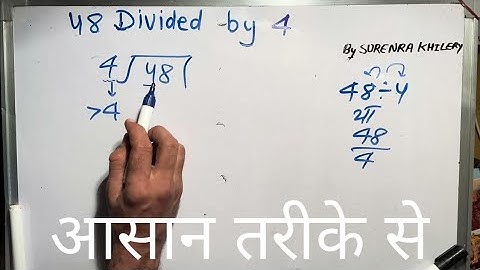 48 Divided by 4
By SURENRA KHILERY
4 ) 48 (
>4
48 ÷ 4
या
48
4
आसान तरीके से